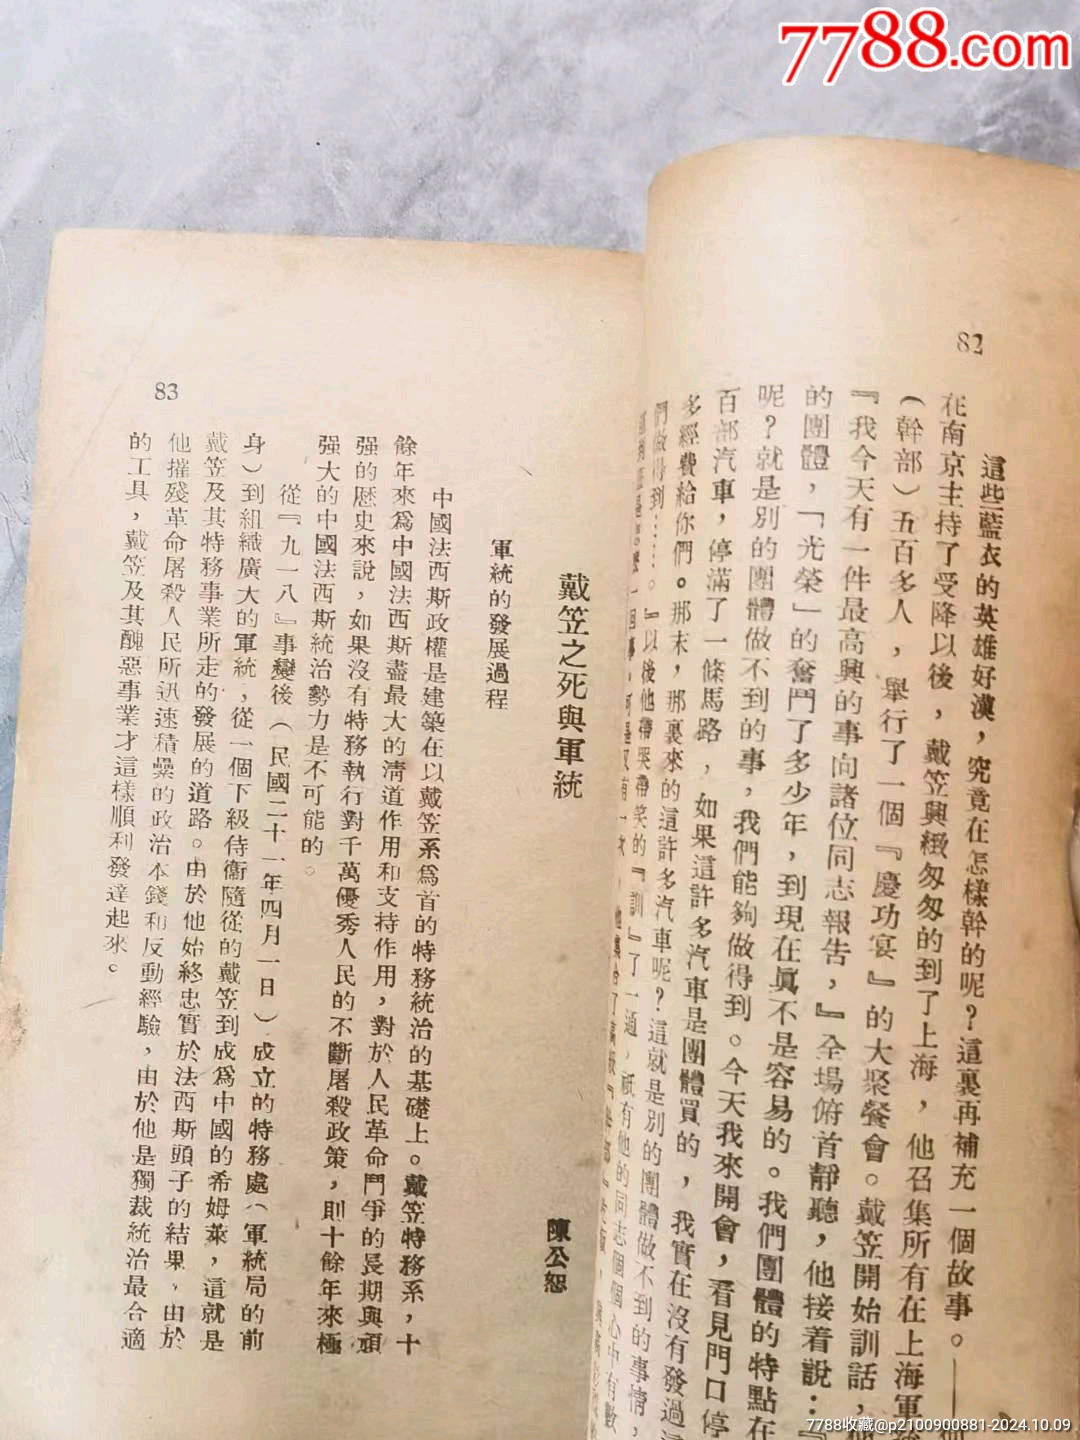 7788.com
82
這些藍衣的英雄好漢，究竟在怎樣幹的呢？這裏再補充一個故事。——
在南京主持了受降以後，戴笠興緻匆匆的到了上海，他召集所有在上海軍
（幹部）五百多人，舉行了一個『慶功宴』的大聚餐會。戴笠開始訓話，
『我今天有一件最高興的事向諸位同志報告，』全場俯首靜聽，他接着說：『
的團體，「光榮」的奮鬥了多少年，到現在眞不是容易的。我們團體的特點在
呢？就是別的團體做不到的事，我們能夠做得到。今天我來開會，看見門口停
百部汽車，停滿了一條馬路，如果這許多汽車是團體買的，我實在沒有發過
多經費給你們。那末，那裏來的這許多汽車呢？這就是別的團體做不到的事情，
們做得到……。』以後他帶哭帶笑的『訓』了一通，祇有他的同志個個心中有數
83
戴笠之死與軍統
陳公恕
軍統的發展過程
中國法西斯政權是建築在以戴笠系爲首的特務統治的基礎上。戴笠特務系，十
餘年來爲中國法西斯盡最大的淸道作用和支持作用，對於人民革命鬥爭的長期與頑
强的歷史來說，如果沒有特務執行對千萬優秀人民的不斷屠殺政策，則十餘年來極
强大的中國法西斯統治勢力是不可能的。
從『九一八』事變後（民國二十一年四月一日）成立的特務處（軍統局的前
身）到組織廣大的軍統，從一個下級侍衞隨從的戴笠到成爲中國的希姆萊，這就是
戴笠及其特務事業所走的發展的道路。由於他始終忠實於法西斯頭子的結果，由於
他摧殘革命屠殺人民所迅速積纍的政治本錢和反動經驗，由於他是獨裁統治最合適
的工具，戴笠及其醜惡事業才這樣順利發達起來。
7788收藏@p2100900881-2024.10.09